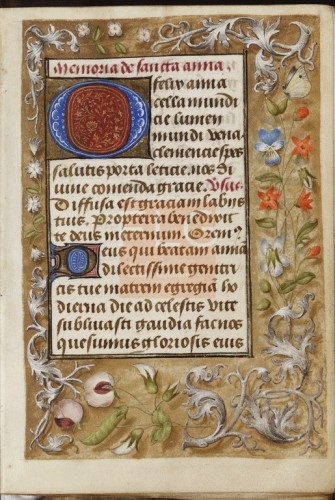 Memoria de sancta anna
O felix anna
cella mundi
cie lumen
mundi vena
clemencie spes
salutis porta leticie. nos di
uine comenda gracie. Vsus
Diffusa est gracia in labijs
tuis. Propterea benedixit
te deus in eternum. Orem9
Deus qui beatam annā
dilectissime genitri
cis tue matrem egregiā ho
dierna die ad celestis vite
subleuasti gaudia fac nos
quesumus gloriosis eius